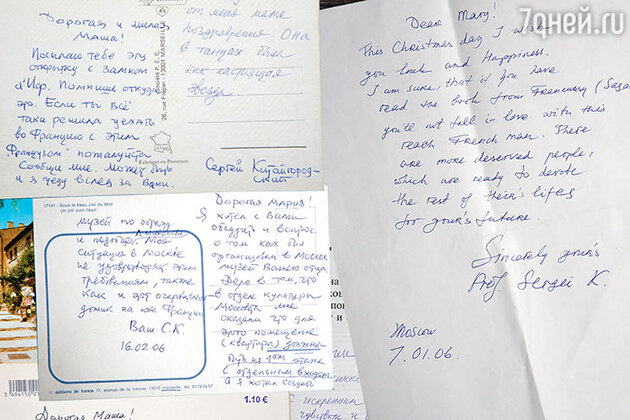 7дней.ru
Дорогая и милая
Маша!
Посылаю тебе эту
открытку с замком
д'Иф. Помнишь откуда
это. Если ты всё
таки решила уехать
во Францию с этим
Французом пожалуйста
сообщи мне. Может быть
и я уеду вслед за Вами.
Société P.E.C.
26, rue Fléger - 13001 MARSEILLE
Fabriqué en Provence
от меня маме
поздравления. Она
в танцах была
как настоящая
звезда
Сергей Китайгород-
ский
Dear Mary!
This Christmas day I wish
you luck and Happiness.
I am sure, that if you have
read the book from Francuary (Sagan
you'll not fell in love with this
reach French man. There
are more deserved people,
which are ready to devote
the rest of their's lifes
for your's future.
Sincerely your's
Prof. Sergei K.
Moscow
7.01.06
17141 - Sous le beau ciel du Midi
Un joli coin fleuri
музей по
и подобрать. Моя
ситуация в Москве
не удовлетворяет этим
требованиям, также
как и этот очаровательный
домик на юге Франции
Ваш С.К.
16.02.06
Дорогая Мария!
Я хотел с Вами
обсудить и вопрос
о том как был
организован в Москве
музей Вашего отца.
Дело в том, что
в отделе культуры
Москвы мне
сказали что для
этого помещение
(квартира) должно
быть на 1ом этаже
с отдельным входом.
а я хотел создать
© éditions de france
1.10 €
3494150
Дорогая Маша!
искренним
чувством и